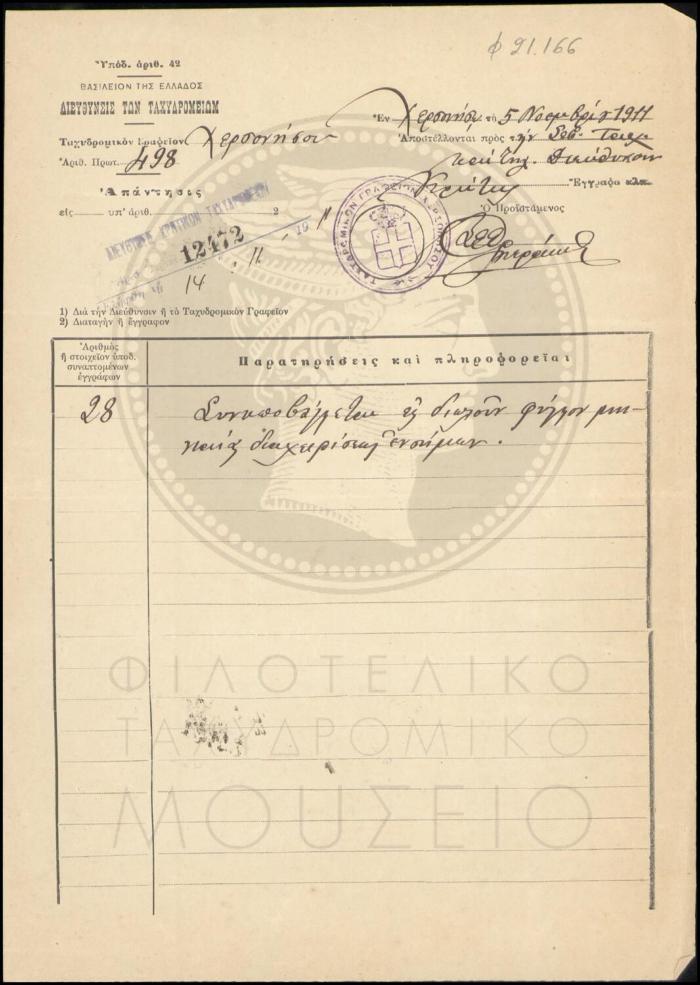 φ 21.166
Ὑπόδ. ἀριθ. 42
ΒΑΣΙΛΕΙΟΝ ΤΗΣ ΕΛΛΑΔΟΣ
ΔΙΕΥΘΥΝΣΙΣ ΤΩΝ ΤΑΧΥΔΡΟΜΕΙΩΝ
Ταχυδρομικὸν Γραφεῖον Χερσονήσου
Ἀριθ. Πρωτ. 498
Ἀπάντησις
εἰς ὑπ' ἀριθ. 2
Ἐν Χερσονήσῳ τῇ 5 Νοεμβρίου 1911
Ἀποστέλλονται πρὸς τὴν Σεβ.
Διεύθυνσιν
Κρήτης
Ἔγγραφα κλπ.
Ὁ Προϊστάμενος
ΤΑΧΥΔΡΟΜΙΚΟΝ ΓΡΑΦΕΙΟΝ ΧΕΡΣΟΝΗΣΟΥ
ΔΙΕΥΘΥΝΣΙΣ ΚΡΗΤΙΚΩΝ ΤΑΧΥΔΡΟΜΕΙΩΝ
12472
14 11 19 11
1) Διὰ τὴν Διεύθυνσιν ἢ τὸ Ταχυδρομικὸν Γραφεῖον
2) Διαταγὴν ἢ ἔγγραφον
Ἀριθμὸς
ἢ στοιχεῖον ὑποδ.
συναπτομένων
ἐγγράφων
Παρατηρήσεις καὶ πληροφορεῖαι
28
Συνυποβάλλεται ἐν διπλοῦν φύλλον μη-
νιαίας διαχειρίσεως ἐνσήμων.
ΦΙΛΟΤΕΛΙΚΟ
ΤΑΧΥΔΡΟΜΙΚΟ
ΜΟΥΣΕΙΟ